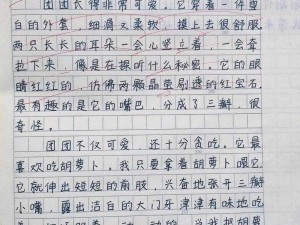 团团长得非常可爱。它穿着一件雪
白的外套，细滑又柔软，摸上去很舒服
两只长长的耳朵一会儿竖立着，一会耷
拉下来，像是在探听什么秘密。它的眼
睛红红的，仿佛两颗晶莹剔透的红宝石
最有趣的是它的嘴巴，分成了三瓣，很
奇怪。
团团不仅可爱，还十分贪吃。它最
喜欢吃胡萝卜。我只要拿着胡萝卜喂它
它就伸出短短的前肢，兴奋地张开三瓣
小嘴，露出洁白的大门牙津津有味地吃
动一动的，当我把胡